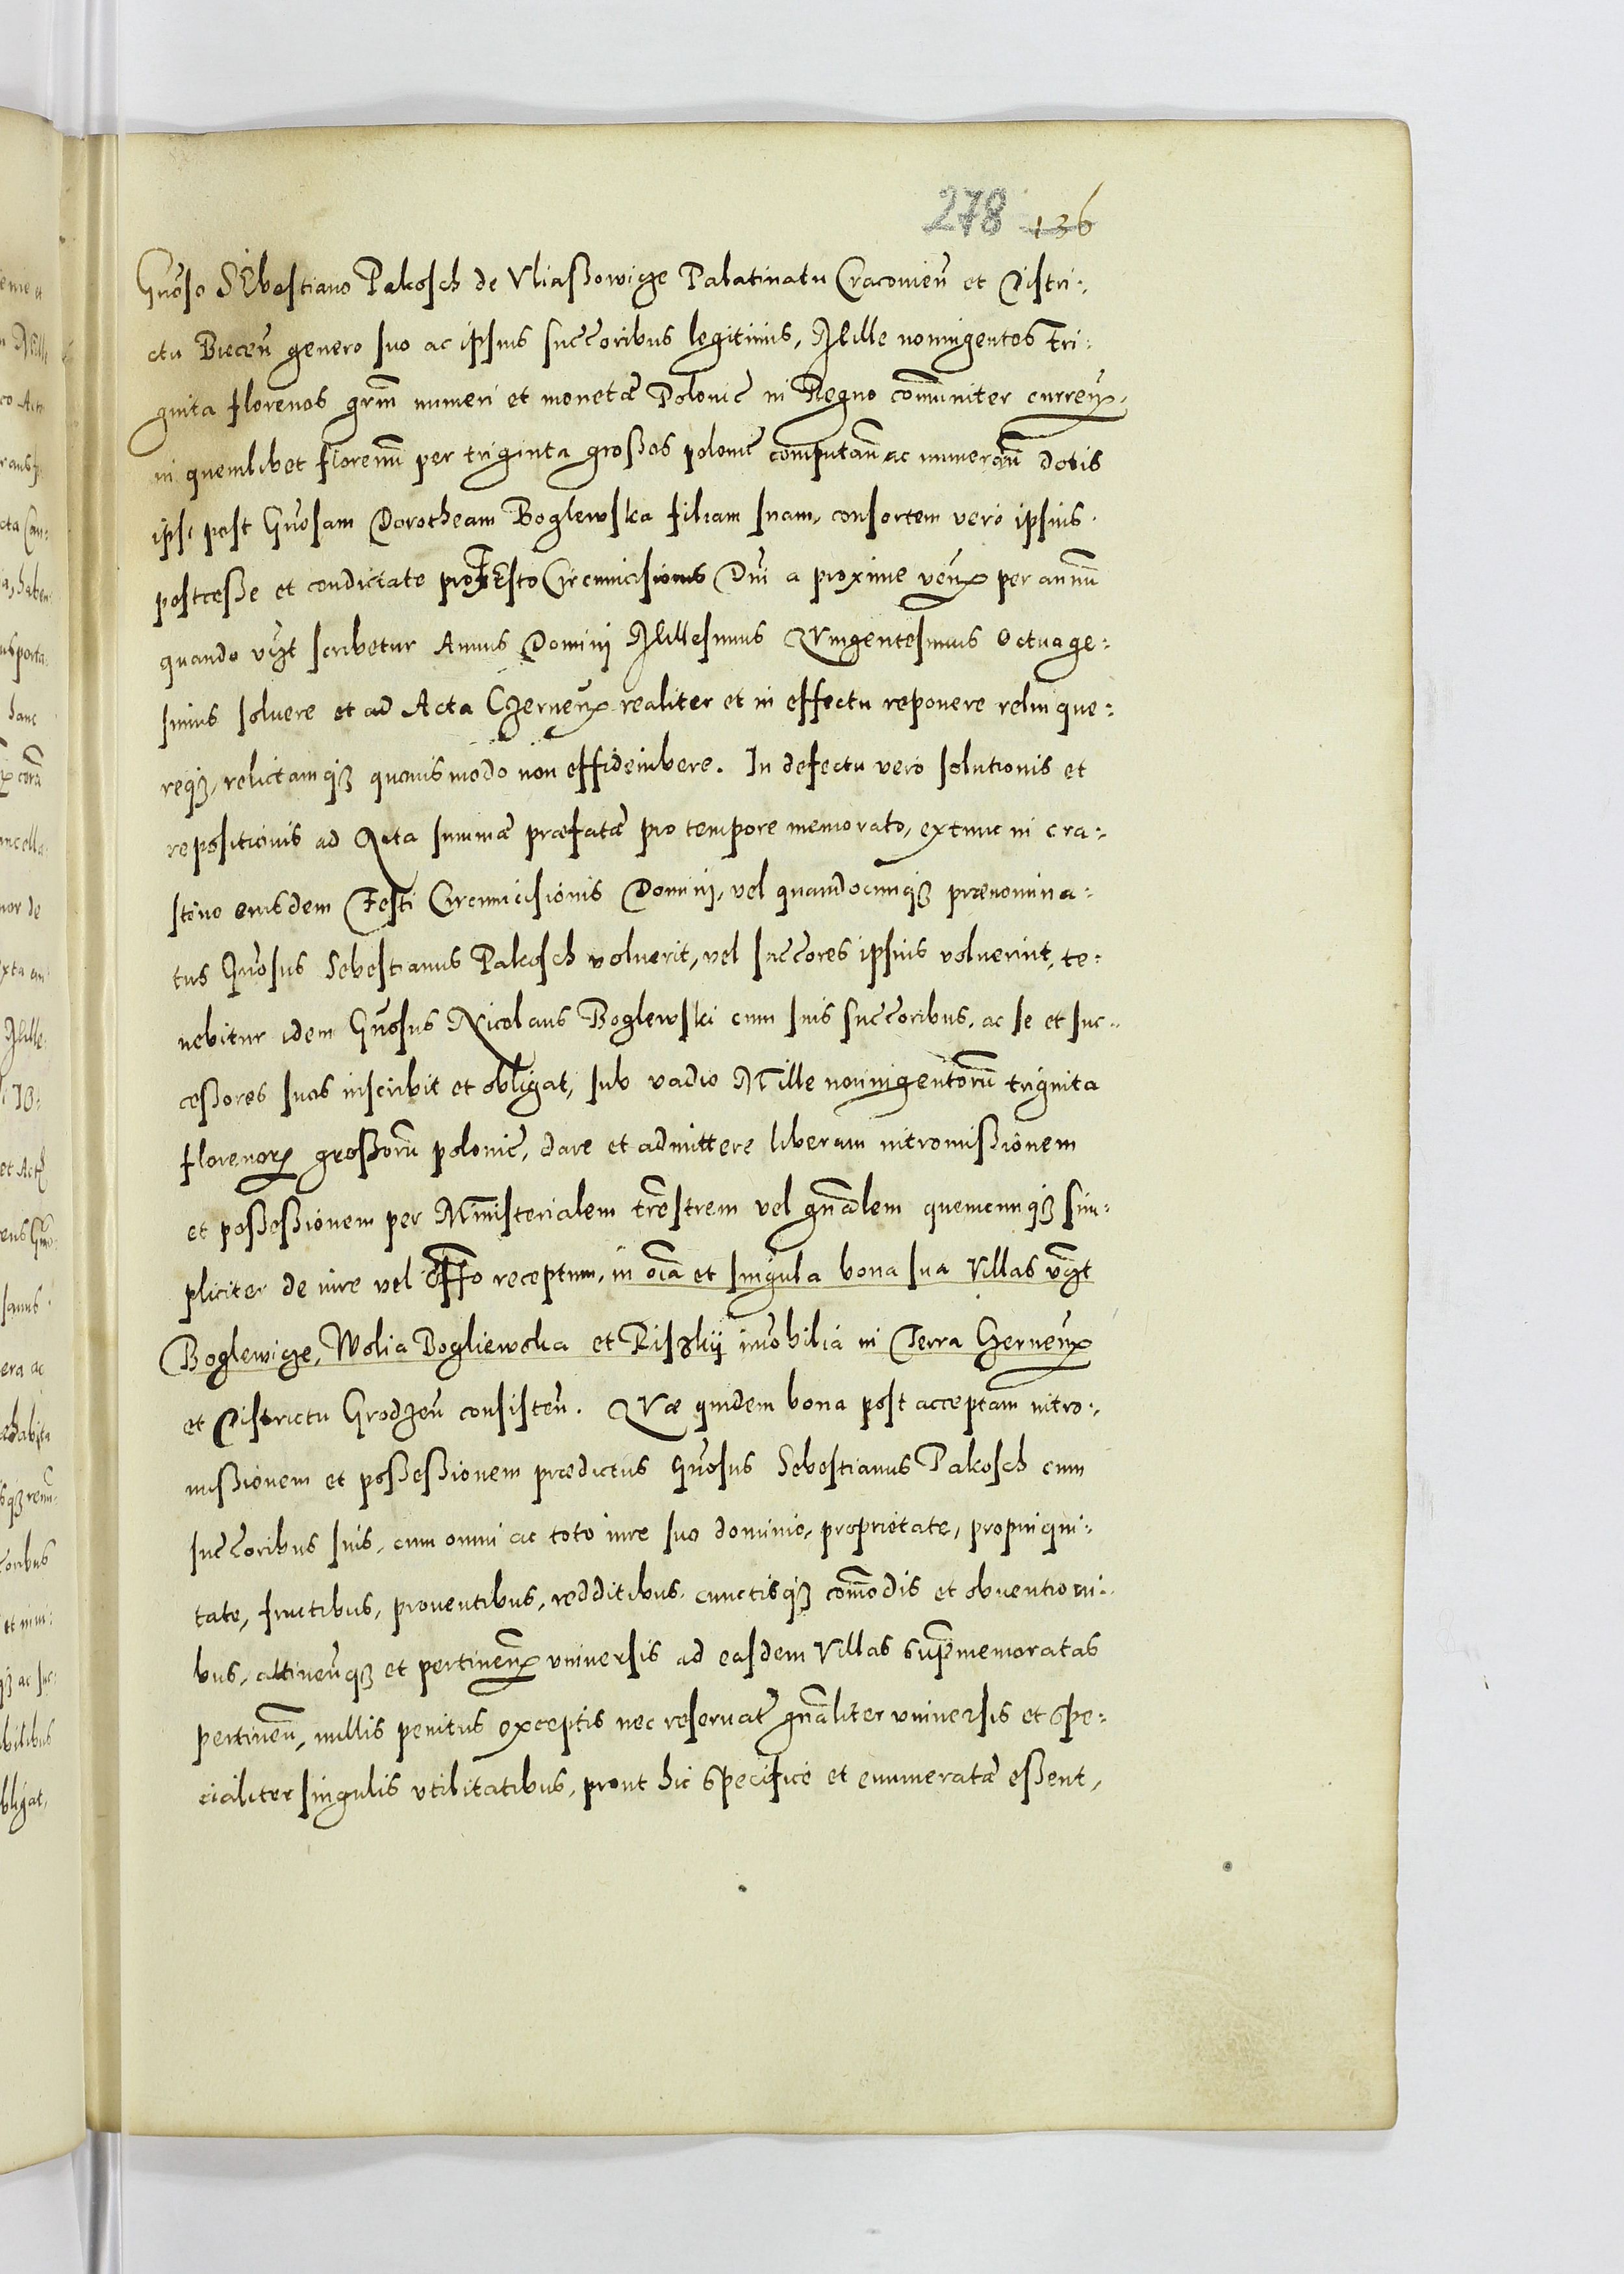 278 136
Gnoso SEbestiano Pakosch de Vliaßowicze Palatinatu Cracovien̄ et Distri:
ctu Biecen̄ genero suo ac ipsius successoribus legitimis, Mille noningentos tri:
ginta florenos grm̄ numeri et monetæ Polonic̄ in Regno com̄uniter curren̄.
in quemlibet florenum per triginta großos polonic̄ computan̄ ac numeran̄ dotis
ipsi post Gnosam Dorotheam Boglewska filiam suam, consortem vero ipsius.
postceße et condictate pro FEsto Circumcisionis Dn̄i a proxime ven̄ per annum
quando vcz̄t scribetur Annus Domini Millesimus Quingentesimus Octuage:
simus soluere et ad Acta Czernen̄ realiter et in effectu reponere relinque:
reqz, relictamqz quouismodo non effideiubere. In defectu vero solutionis et
repositionis ad Acta summæ præfatæ pro tempore memorato, extunc in cra:
stino eiusdem Festi Circumcisionis Domini, vel quandocunqz prænomina:
tus Gnosus Sebestianus Pakosch voluerit, vel succores ipsius voluerint, te:
nebitur idem Gnosus Nicolaus Boglewski cum suis succoribus, ac se et suc:
ceßores suos inscribit et obligat, sub vadio Mille noningentorum triginta
florenorum großorum polonic̄, dare et admittere liberam intromißionem
et poßeßionem per Ministerialem tr̄estrem vel gn̄alem quemcunqz sim:
pliciter de iure vel offo receptum, in oīa et singula bona sua Villas vcz̄t
Boglewicze, Wolia Bogliewska et Riszkij imobilia in Terra Czernen̄
et Districtu Grodzen̄ consisten̄. Quæ quidem bona post acceptam intro:
mißionem et poßeßionem prædictus Gnosus Sebestianus Pakosch cum
succoribus suis, cum omni ac toto iure suo dominio, proprietate, propinqui:
tate, fructibus, prouentibus, redditibus, cunctisqz com̄odis et obuentioni:
bus, attinen̄qz et pertinen̄ vniuersis ad easdem Villas supramemoratas
pertinen̄, nullis penitus exceptis nec reseruat̄ gn̄aliter vniuersis et spe:
cialiter singulis vtilitatibus, prout hic specifice et enumeratæ eßent,